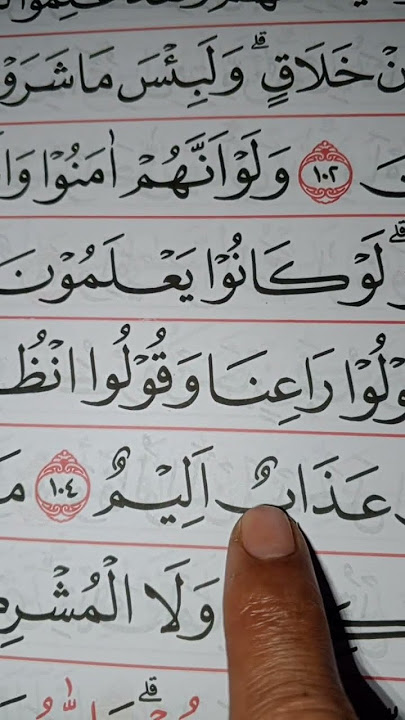 خَلَاقٍ ۗ وَلَبِئْسَ مَا شَرَوْ
١٠٢ وَلَوْ اَنَّهُمْ اٰمَنُوْا وَا
لَوْ كَانُوْا يَعْلَمُوْنَ
وْلُوْا رَاعِنَا وَقُوْلُوا انْظُ
عَذَابٌ اَلِيْمٌ ١٠٤ مَ
وَلَا الْمُشْرِ